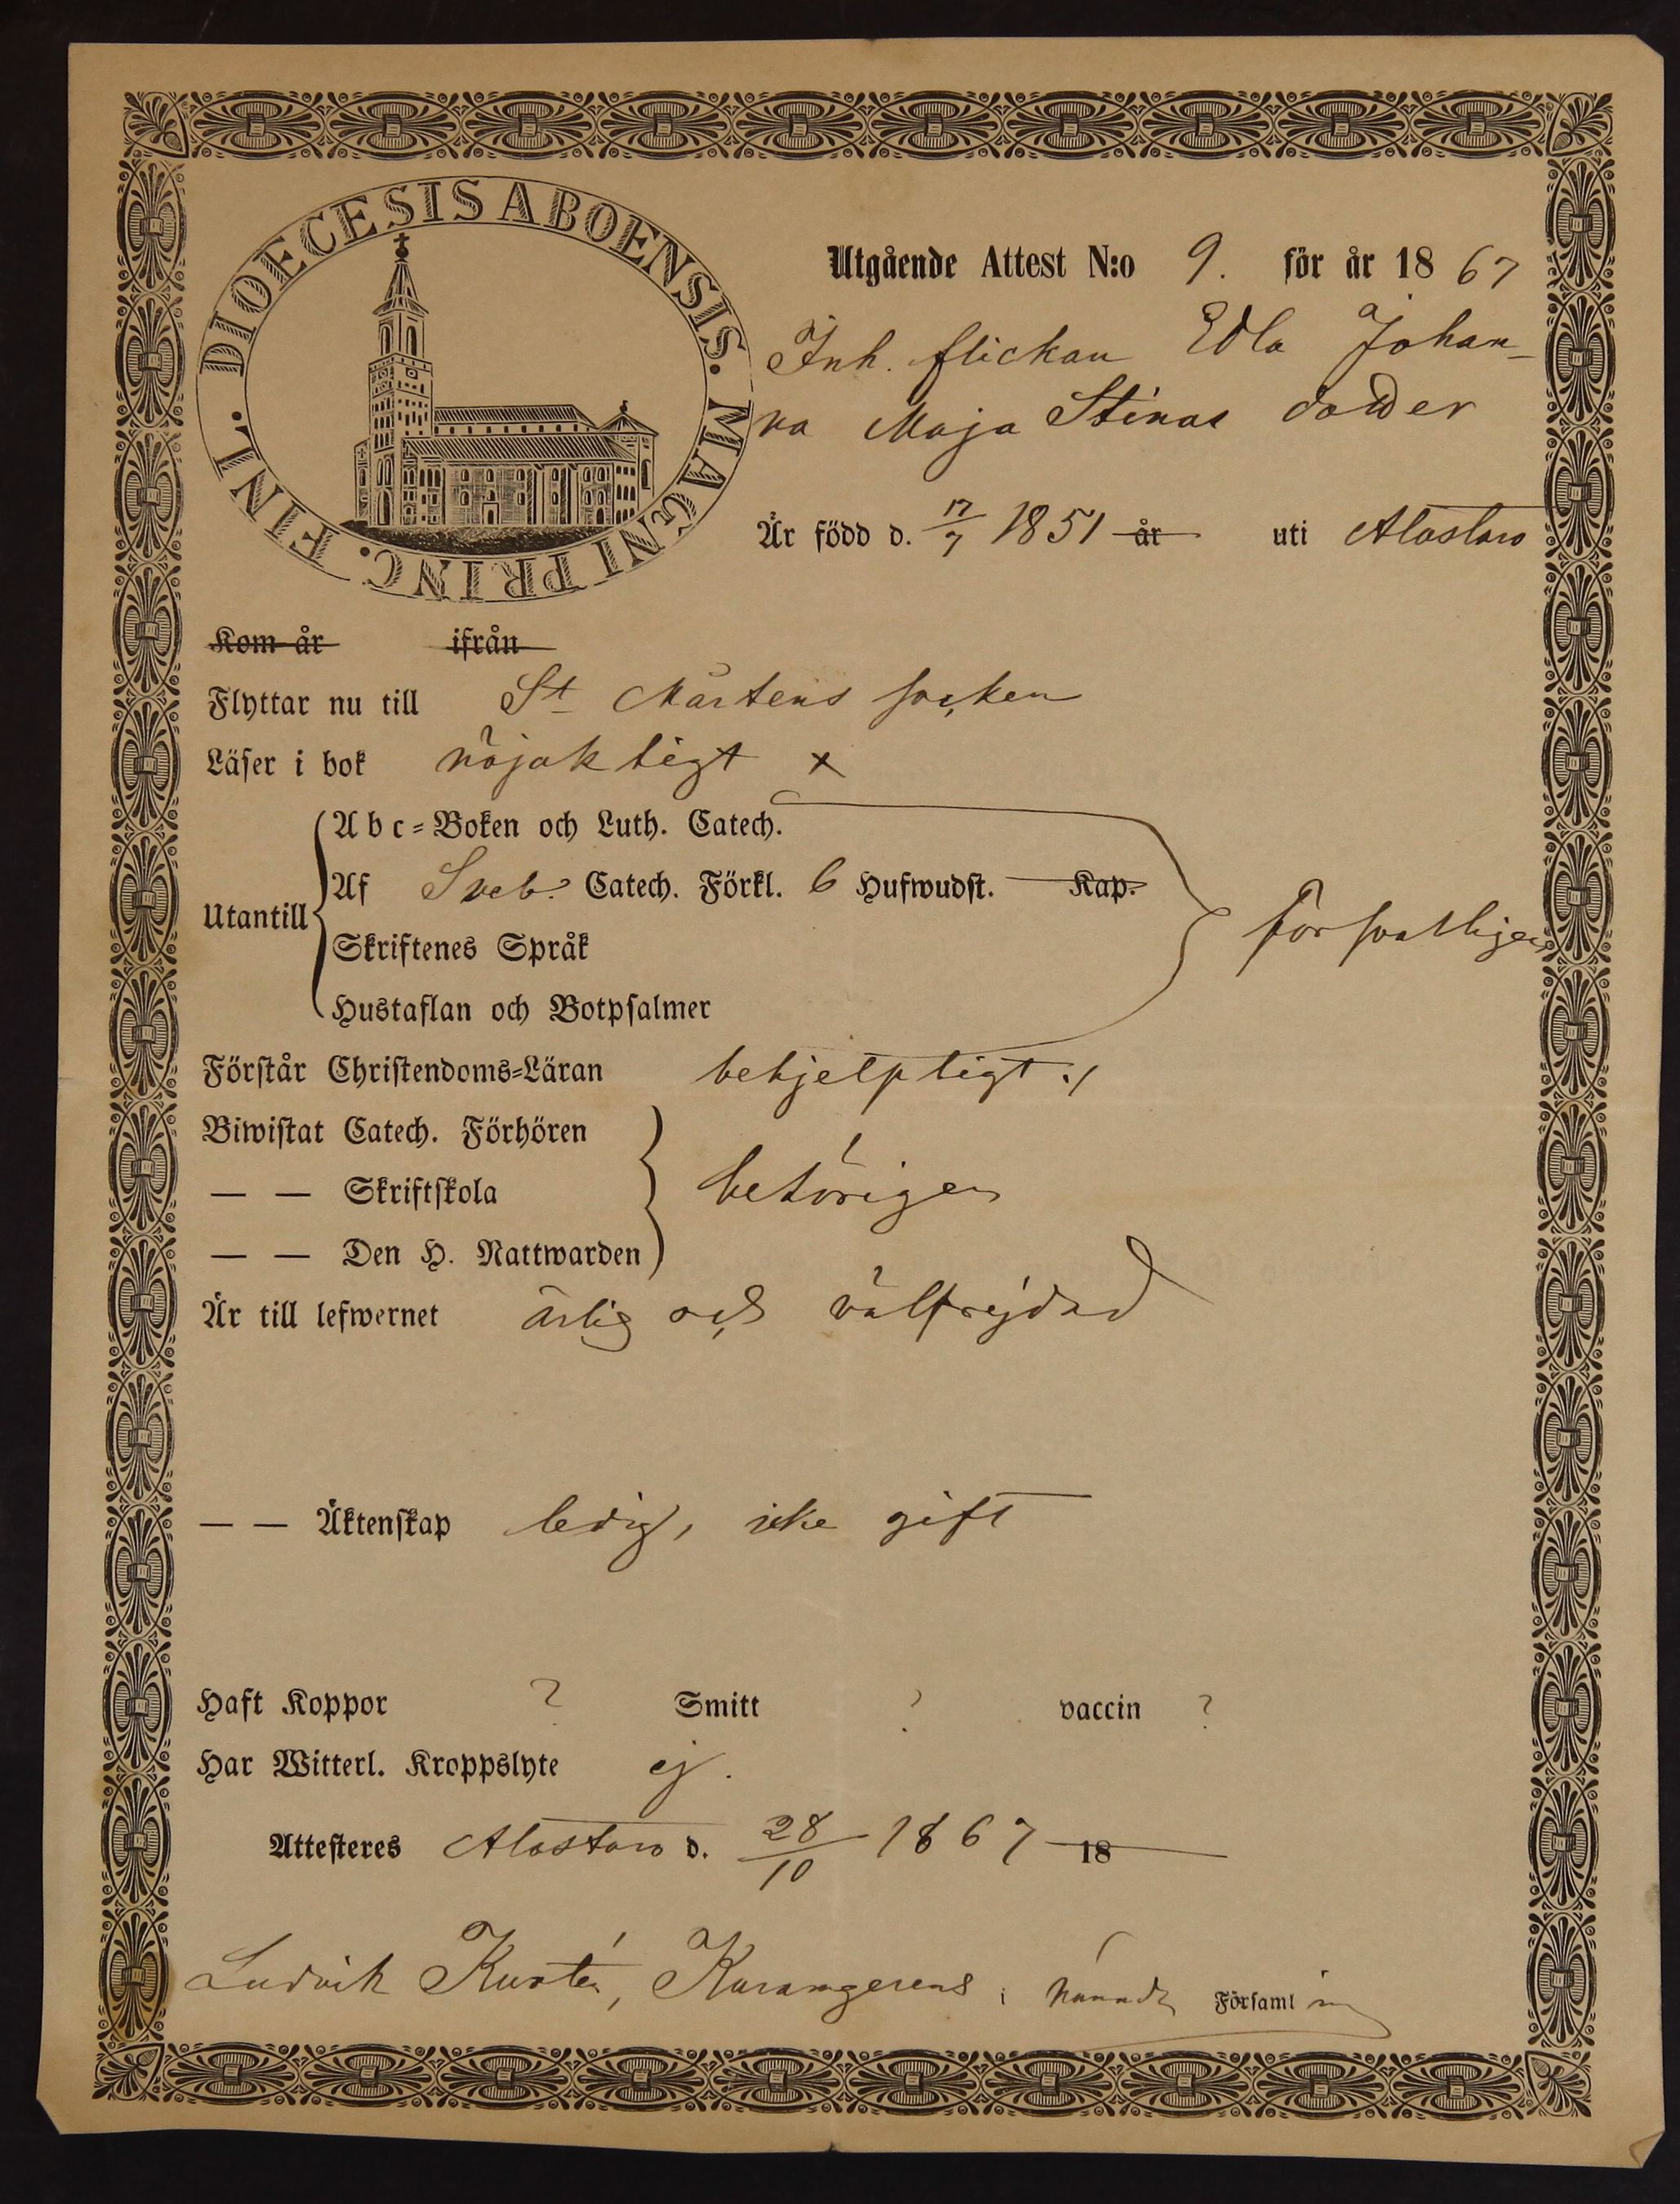 DIOECESIS ABOENSIS. MAGNI PRINC. FINL.
Utgående Attest N:o 9. för år 1867
Inh. flickan Edla Johan-
na Maja Stinas dotter
Är född d. 17/7 1851 år uti Alastaro
Kom år ifrån
Flyttar nu till St Mårtens socken
Läser i bok nöjaktigt x
Abc-Boken och Luth. Catech.
Af Sveb. Catech. Förkl. 6 Hufwudst. Kap.
Utantill försvarligen
Skriftenes Språk
Hustaflan och Botpsalmer
Förstår Christendoms-Läran behjelpligt
Biwistat Catech. Förhören
— — Skriftskola behörigen
— — Den H. Nattwarden
Är till lefwernet ärlig och välfrejdad
— — Äktenskap ledig, icke gift
Haft Koppor ? Smitt ? vaccin ?
Har Witterl. Kroppslyte ej.
Attesteres Alastaro d. 28/10 1867 18
Ludvik Kurtén, i nämnde Församling